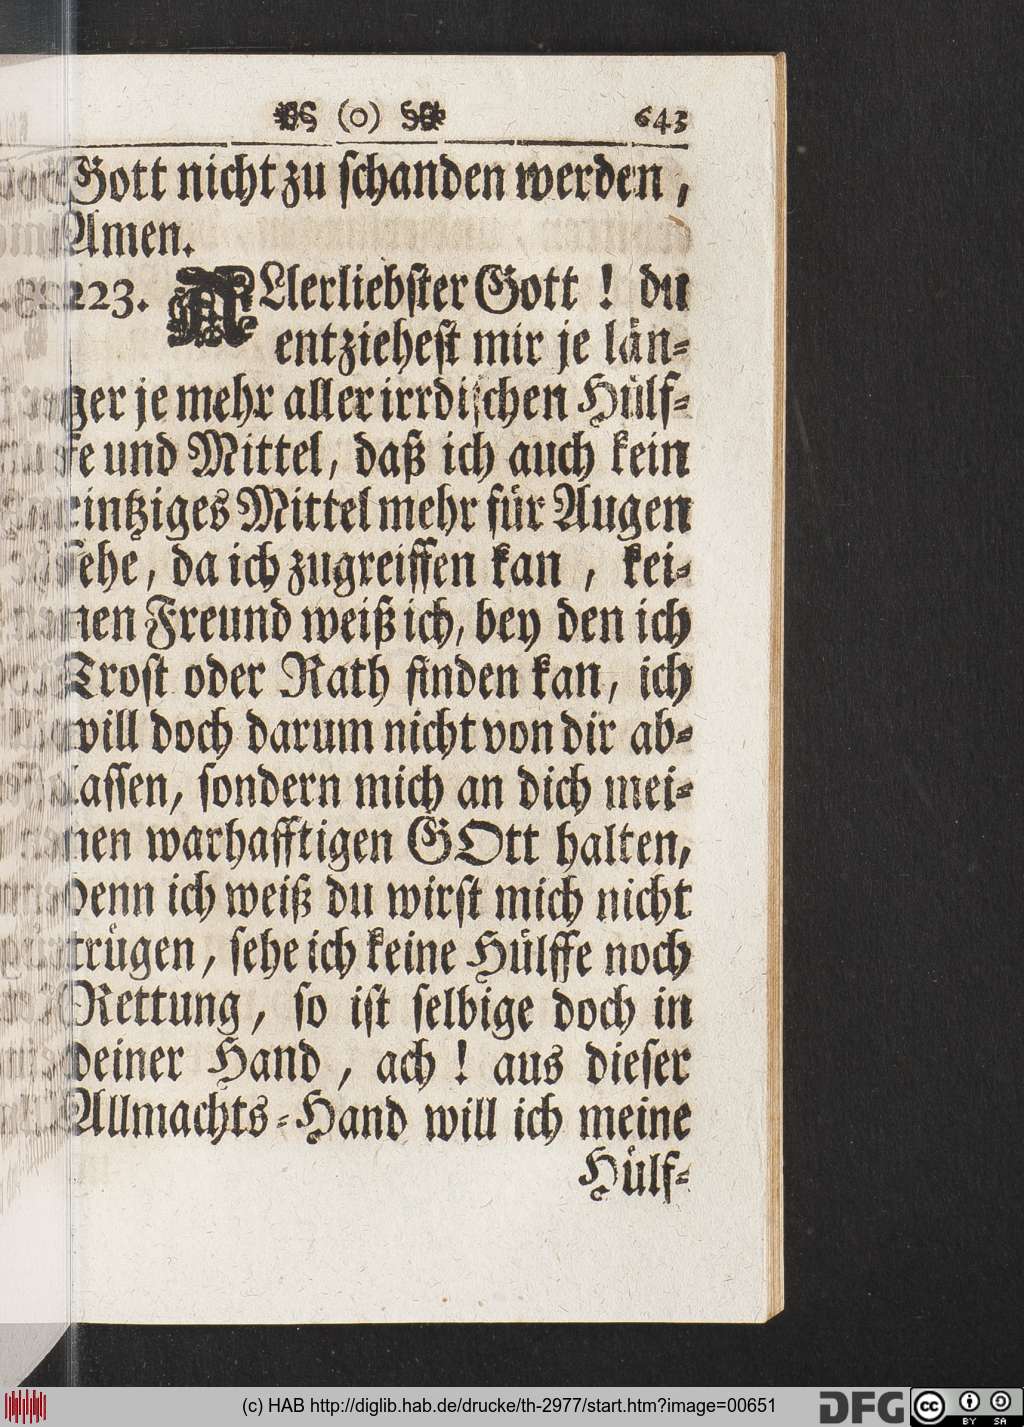 (o) 643
Gott nicht zu schanden werden,
Amen.
223. ALlerliebster Gott! du
entziehest mir je län-
ger je mehr aller irrdischen Hülf-
fe und Mittel, daß ich auch kein
eintziges Mittel mehr für Augen
sehe, da ich zugreiffen kan, kei-
nen Freund weiß ich, bey den ich
Trost oder Rath finden kan, ich
will doch darum nicht von dir ab-
lassen, sondern mich an dich mei-
nen warhafftigen GOtt halten,
denn ich weiß du wirst mich nicht
trügen, sehe ich keine Hülffe noch
Rettung, so ist selbige doch in
deiner Hand, ach! aus dieser
Allmachts-Hand will ich meine
Hülf-
(c) HAB http://diglib.hab.de/drucke/th-2977/start.htm?image=00651
DFG
cc BY SA